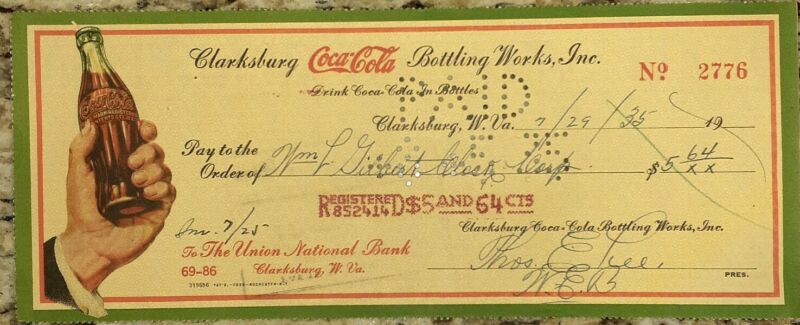 Clarksburg Coca-Cola Bottling Works, Inc.
Nº 2776
Drink Coca-Cola In Bottles
PAID
Clarksburg, W. Va. 7/29/35 19
Pay to the
Order of Wm L. Gilbert Clock Corp. $5 64/xx
REGISTERED $5 AND 64 CTS
R852414D
Clarksburg Coca-Cola Bottling Works, Inc.
Inv. 7/25
To The Union National Bank
69-86 Clarksburg, W. Va.
Thos. E.
PRES.
W.E.B